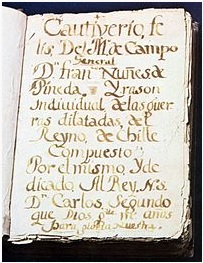 Cautiverio, fe
lis Del M. de Campo
General
Dn. fran.co Nuñes de
Pineda, Y rason
Indiuidual de las guer
ras dilatadas, del
Reyno, de Chille
Compuesto
Por el mismo, Y de
dicado, Al Rey, N. S.
Dn. Carlos, Segundo
que Dios g.ue ms. años
Para gloria nuestra.